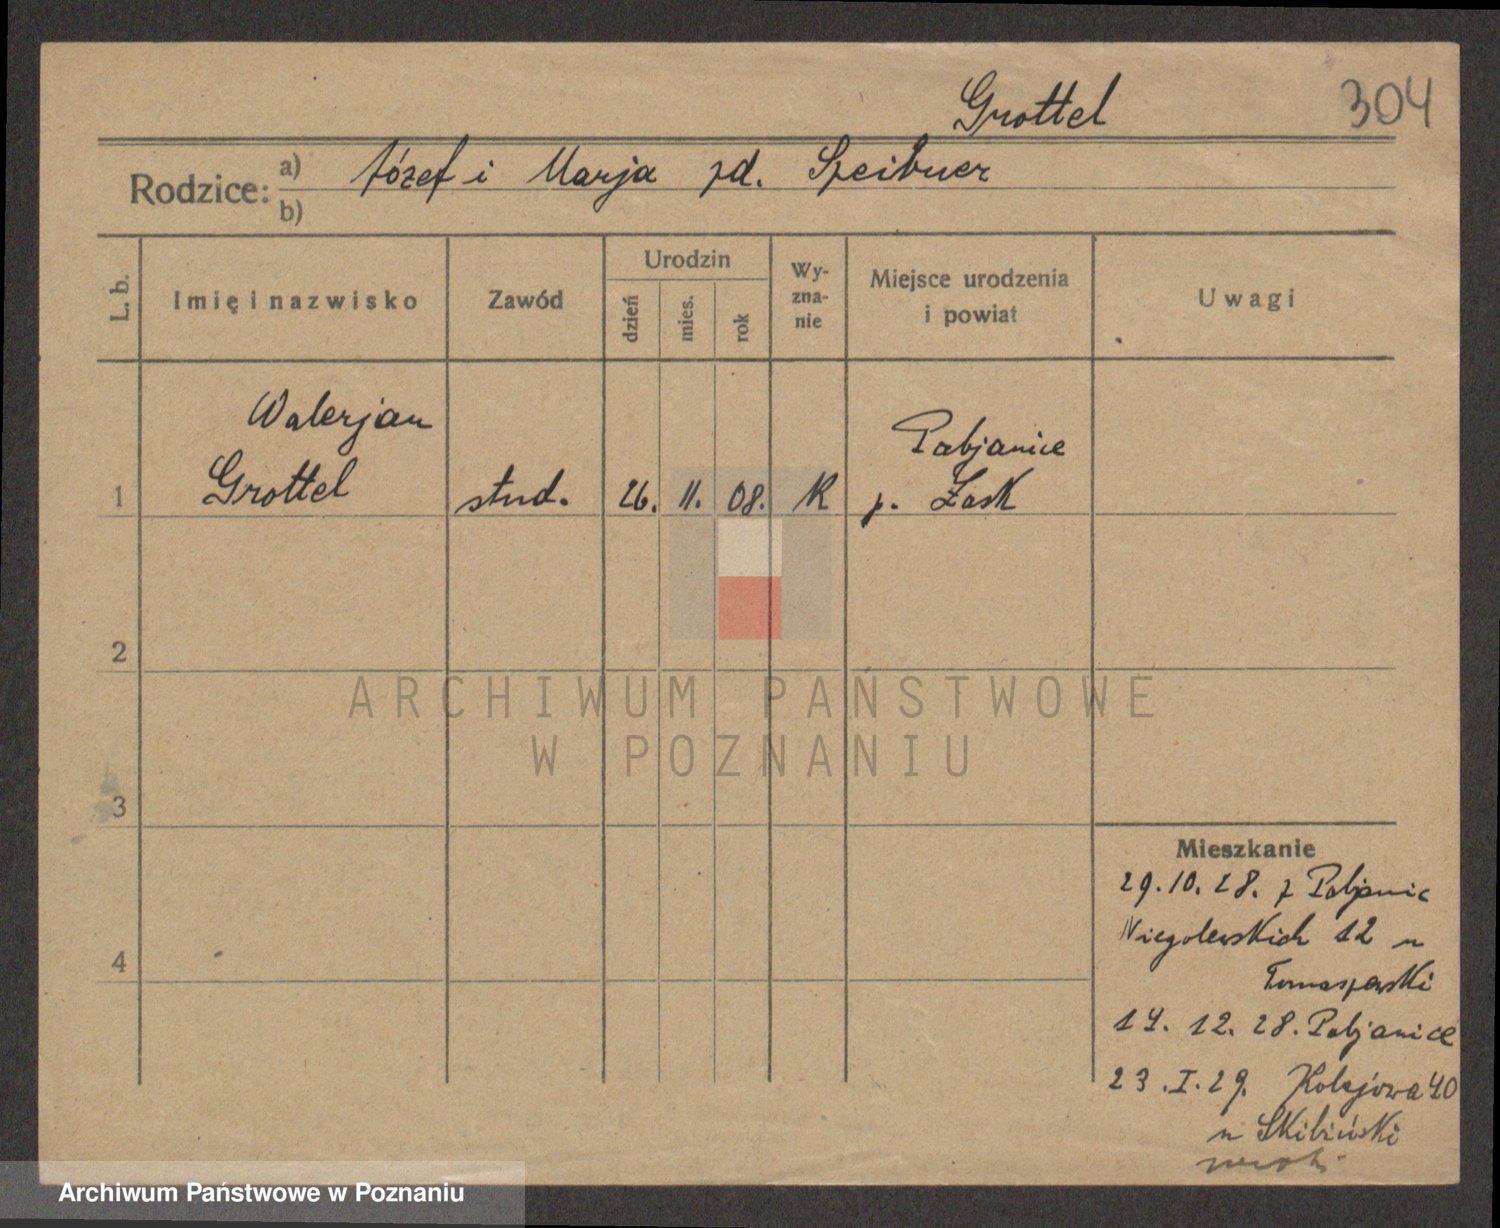 Grottel
304
Rodzice: a) Józef i Marja zd. Speibner
b)
L. b.
Imię i nazwisko
Zawód
Urodzin
dzień
mies.
rok
Wy-
zna-
nie
Miejsce urodzenia
i powiat
Uwagi
Walerjan
Pabjanice
1 Grottel stud. 26. 11. 08. R p. Łask
2
ARCHIWUM PAŃSTWOWE
W POZNANIU
3
Mieszkanie
29. 10. 28. z Pabjanic
Niegolewskich 12 u
4
Tomaszewski
14. 12. 28. Pabjanice
23. I. 29. Kolejowa 40
u Skibiński
Archiwum Państwowe w Poznaniu